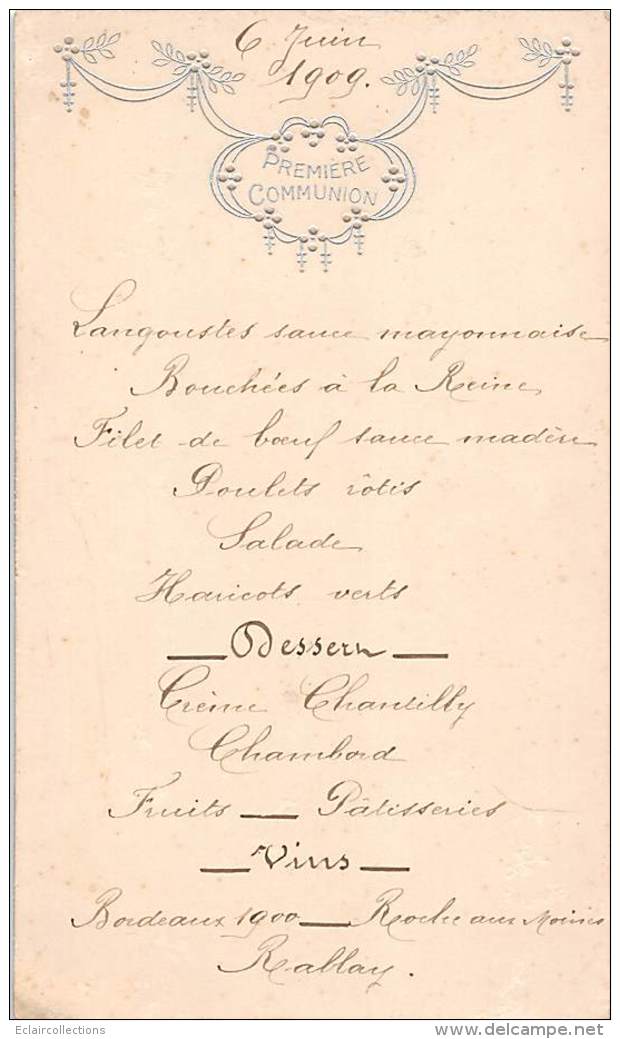 6 Juin
1909.
PREMIÈRE
COMMUNION
Langoustes sauce mayonnaise
Bouchées à la Reine
Filet de bœuf sauce madère
Poulets rôtis
Salade
Haricots verts
— Dessert —
Crème Chantilly
Chambord
Fruits — Pâtisseries
— Vins —
Bordeaux 1900 — Roche aux Moines
Rablay.
Eclaircollections
www.delcampe.net